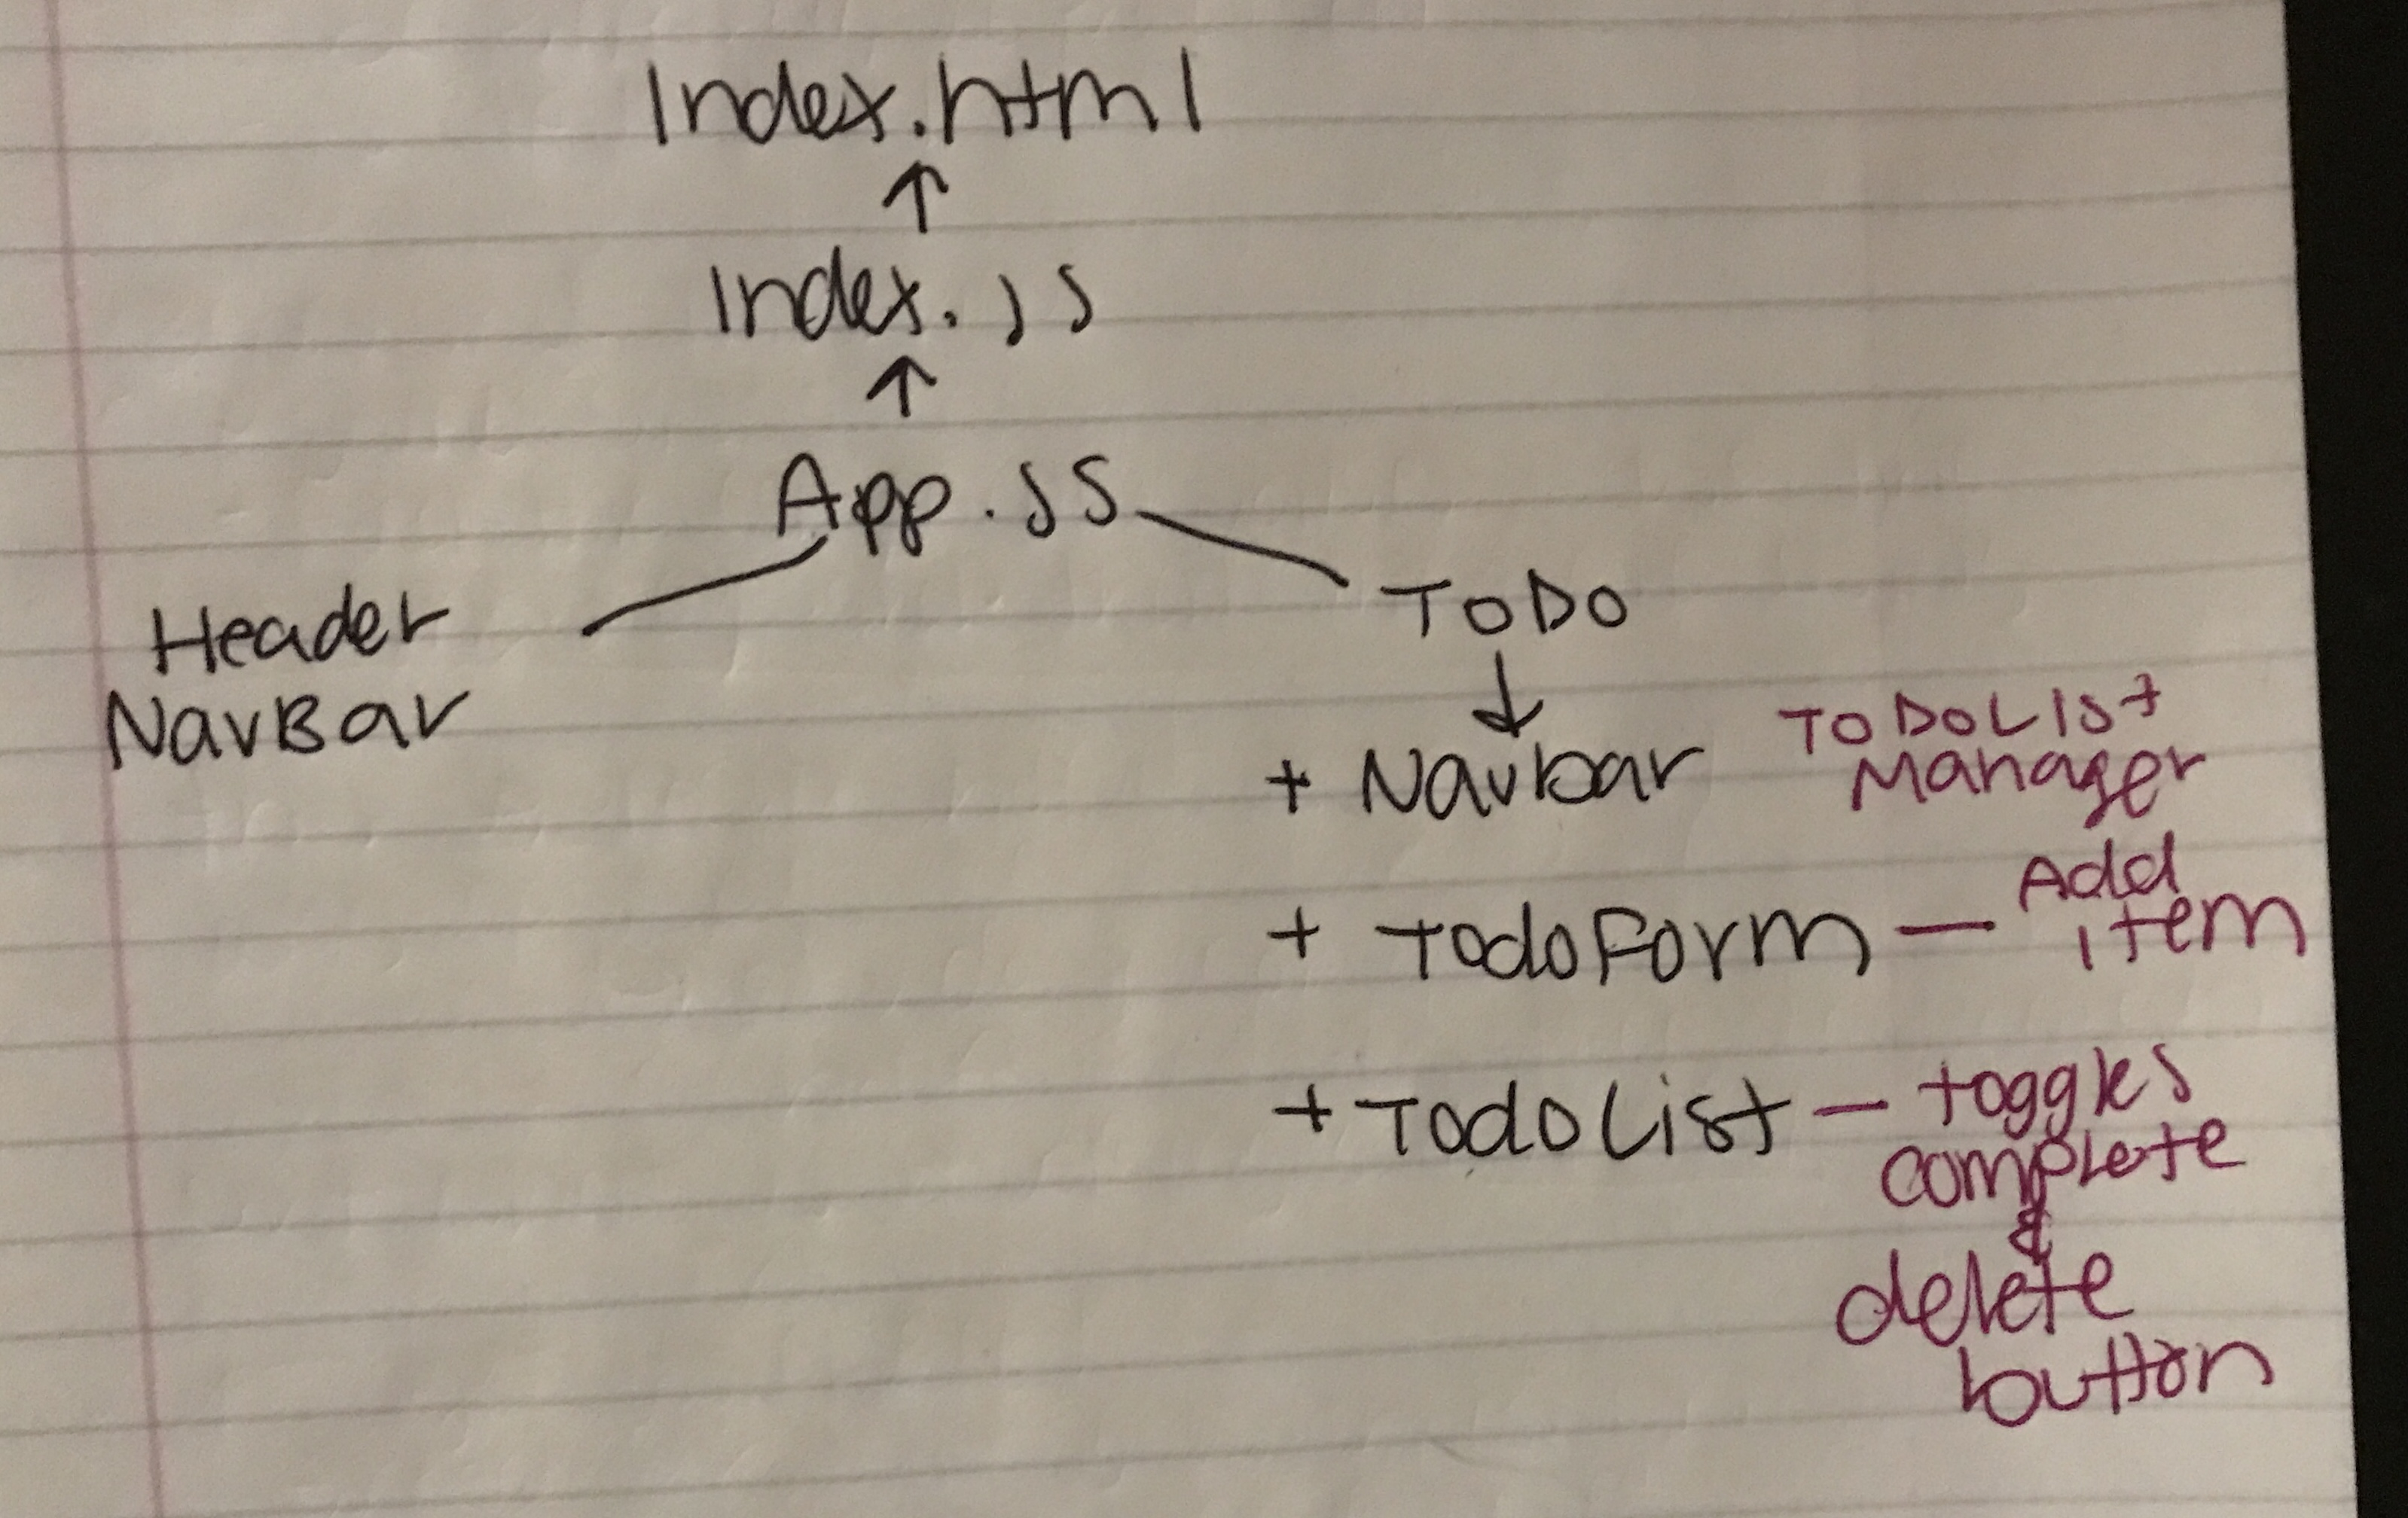 Index.html
Index.js
App.js
Header
NavBar
ToDo
+ Navbar
ToDoList
Manager
+ TodoForm — Add
item
+ TodoList — toggles
complete
&
delete
button